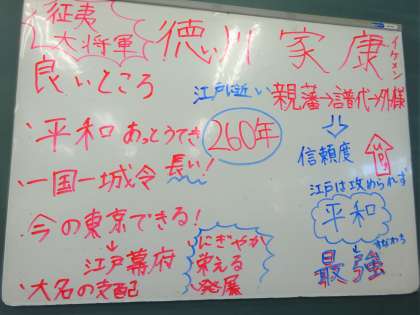 征夷
大将軍
徳川家康
イケメン
良いところ
江戸に近い
親藩→譜代→外様
信頼度
UP
・平和 あっとうてき 260年
長い!
・一国一城令
江戸は攻められず
平和
すなわち
最強
今の東京できる!
→江戸幕府
・大名の支配
にぎやか
栄える
発展